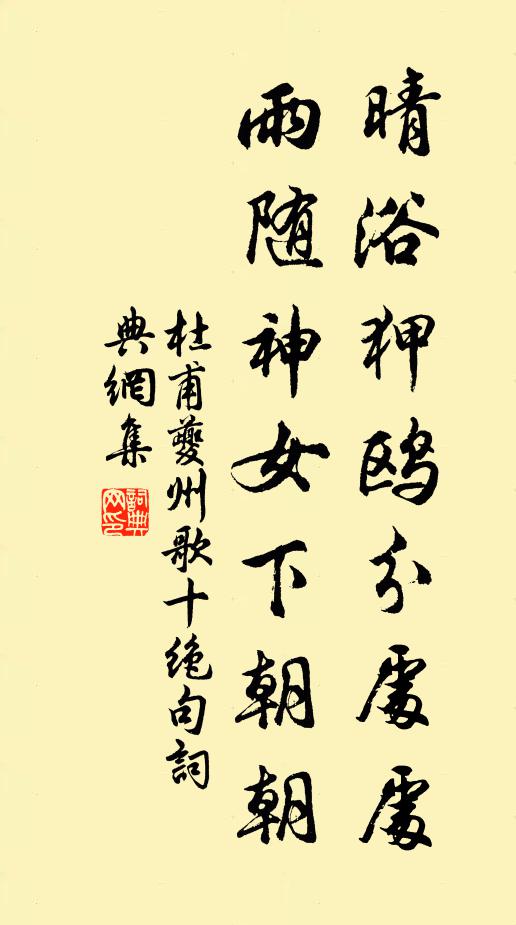 晴浴狎鸥分處處
雨随神女下朝朝
杜甫夔州歌十绝句詞
典網集
詞典网印